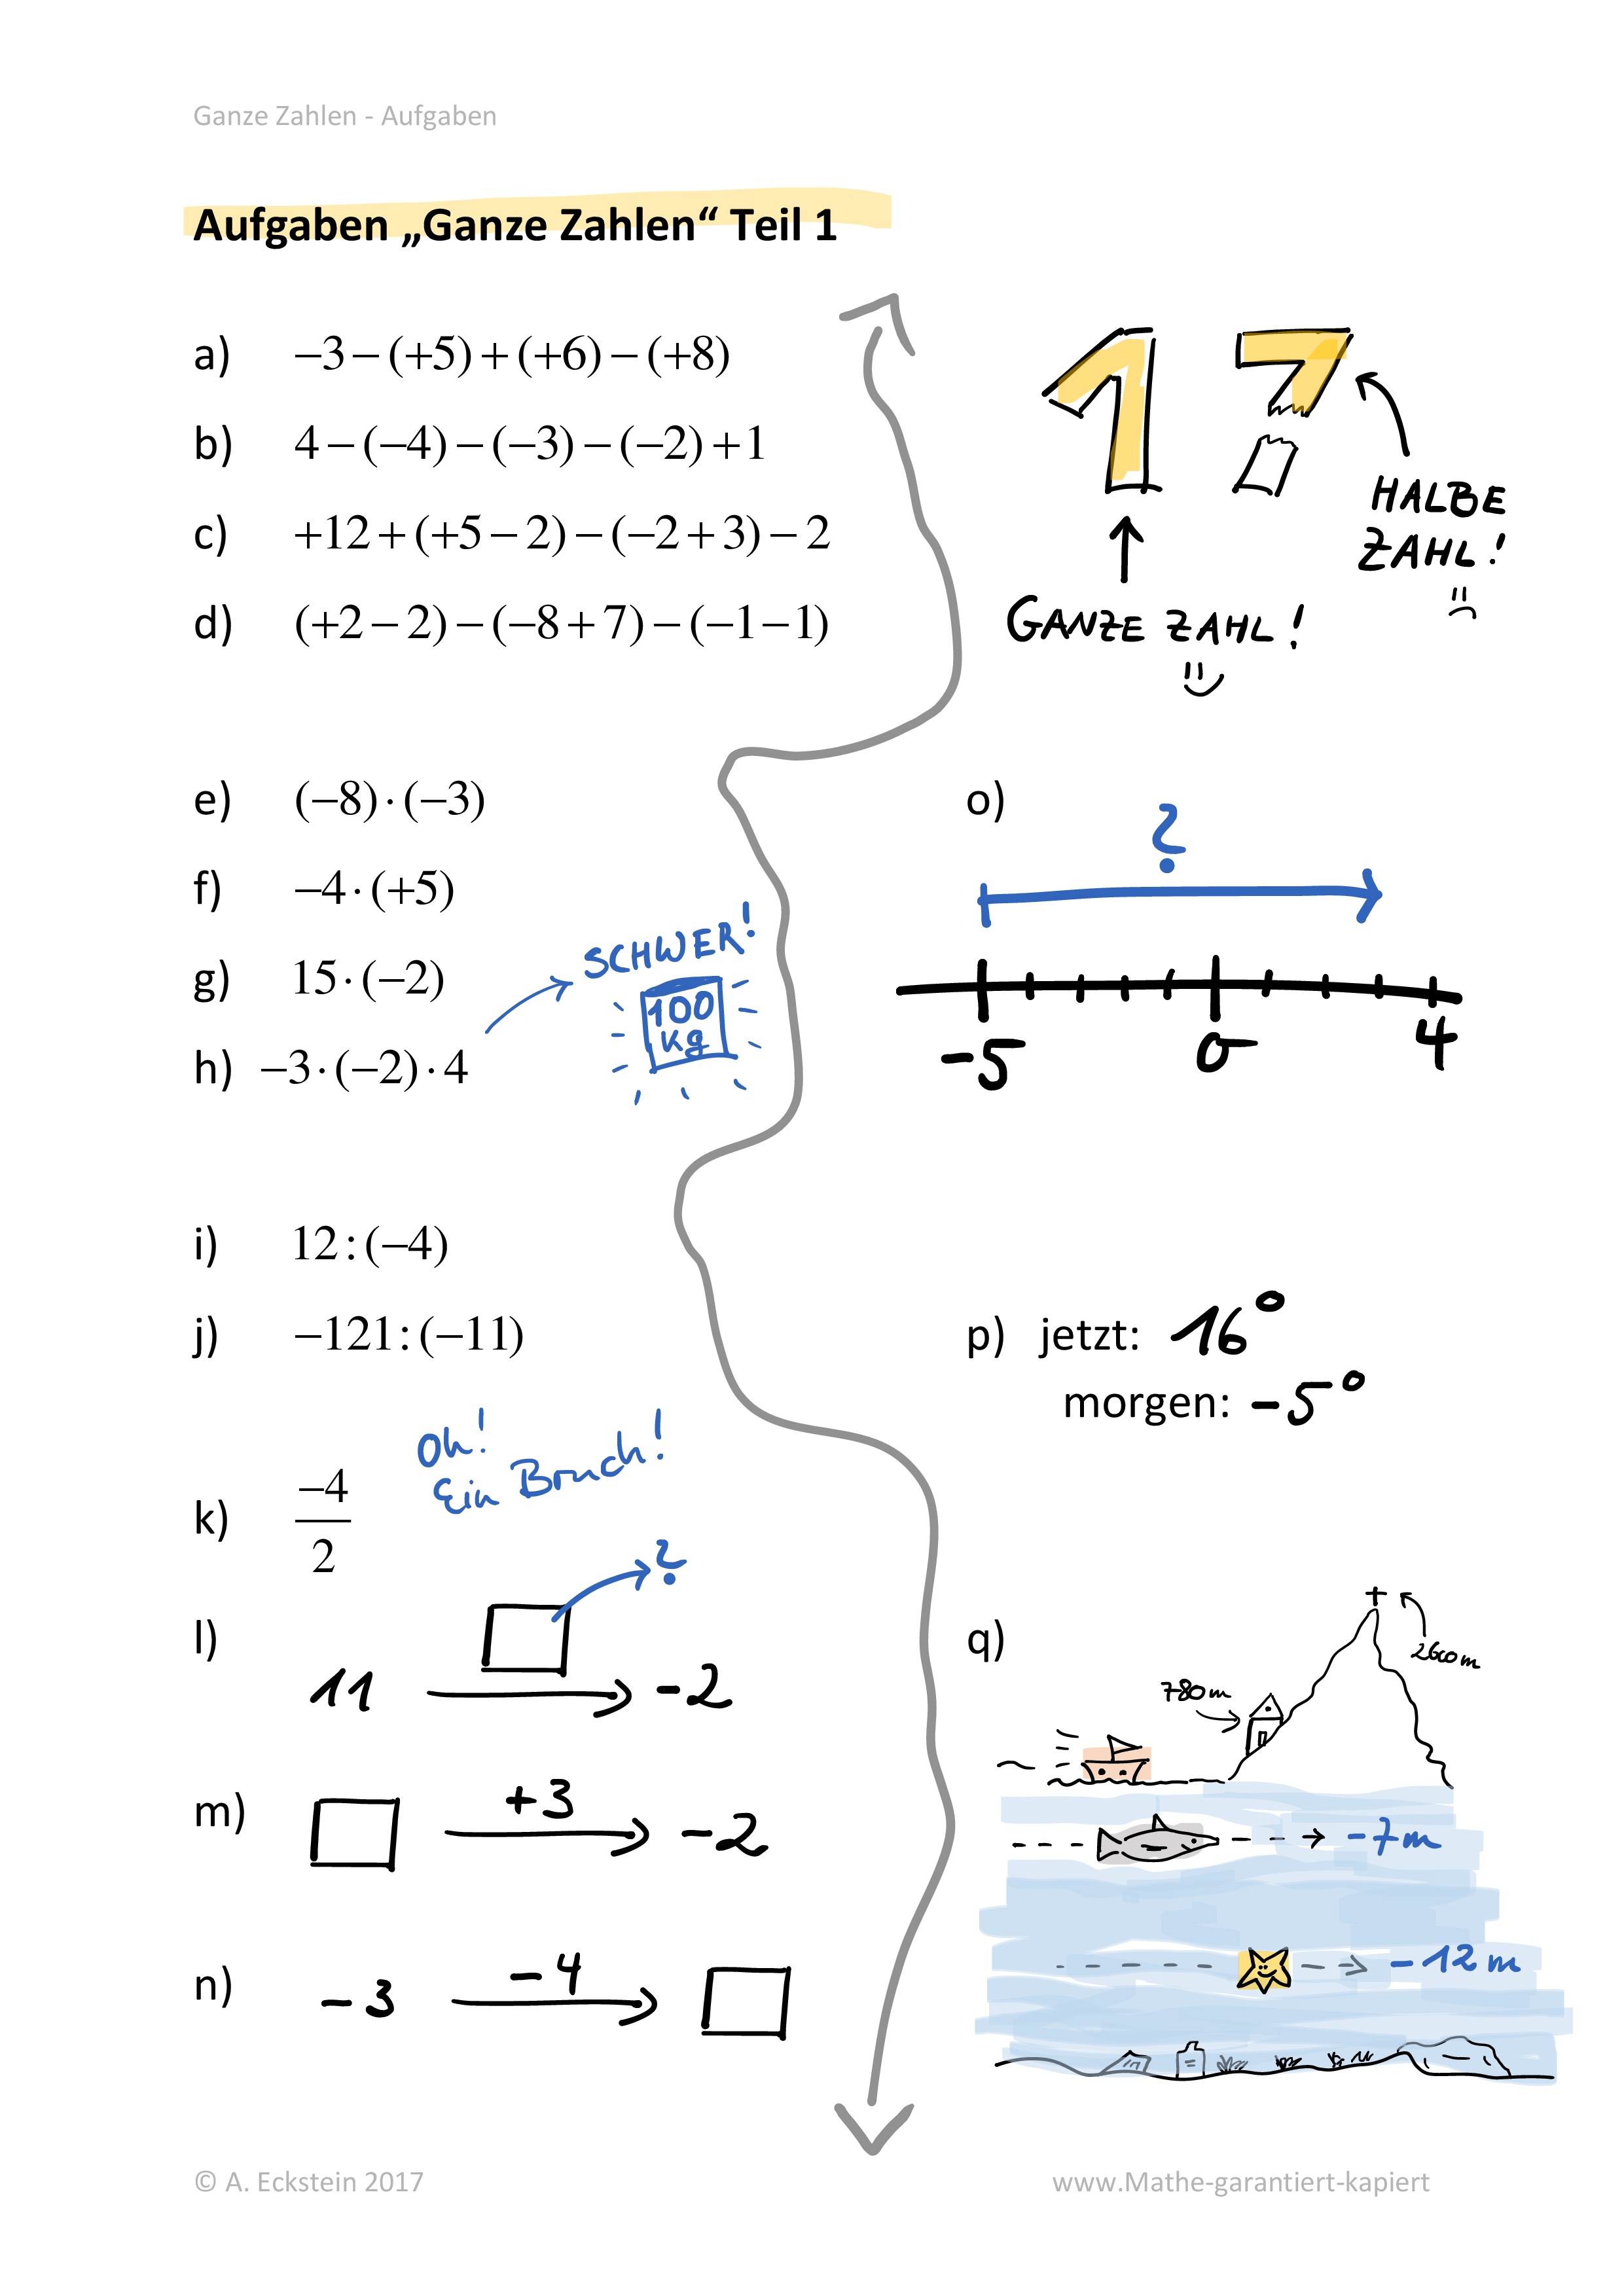 Ganze Zahlen - Aufgaben
Aufgaben „Ganze Zahlen“ Teil 1
a) −3−(+5)+(+6)−(+8)
b) 4−(−4)−(−3)−(−2)+1
c) +12+(+5−2)−(−2+3)−2
d) (+2−2)−(−8+7)−(−1−1)
1 7
HALBE
ZAHL!
GANZE ZAHL!
e) (−8)·(−3)
f) −4·(+5)
g) 15·(−2)
SCHWER!
100
kg
h) −3·(−2)·4
o)
?
-5 0 4
i) 12:(−4)
j) −121:(−11)
Oh!
Ein Bruch!
k) −4
2
l) ?
11 -2
m) +3
-2
n) -4
-3
p) jetzt: 16°
morgen: -5°
q)
2600m
780m
-7m
-12m
© A. Eckstein 2017
www.Mathe-garantiert-kapiert